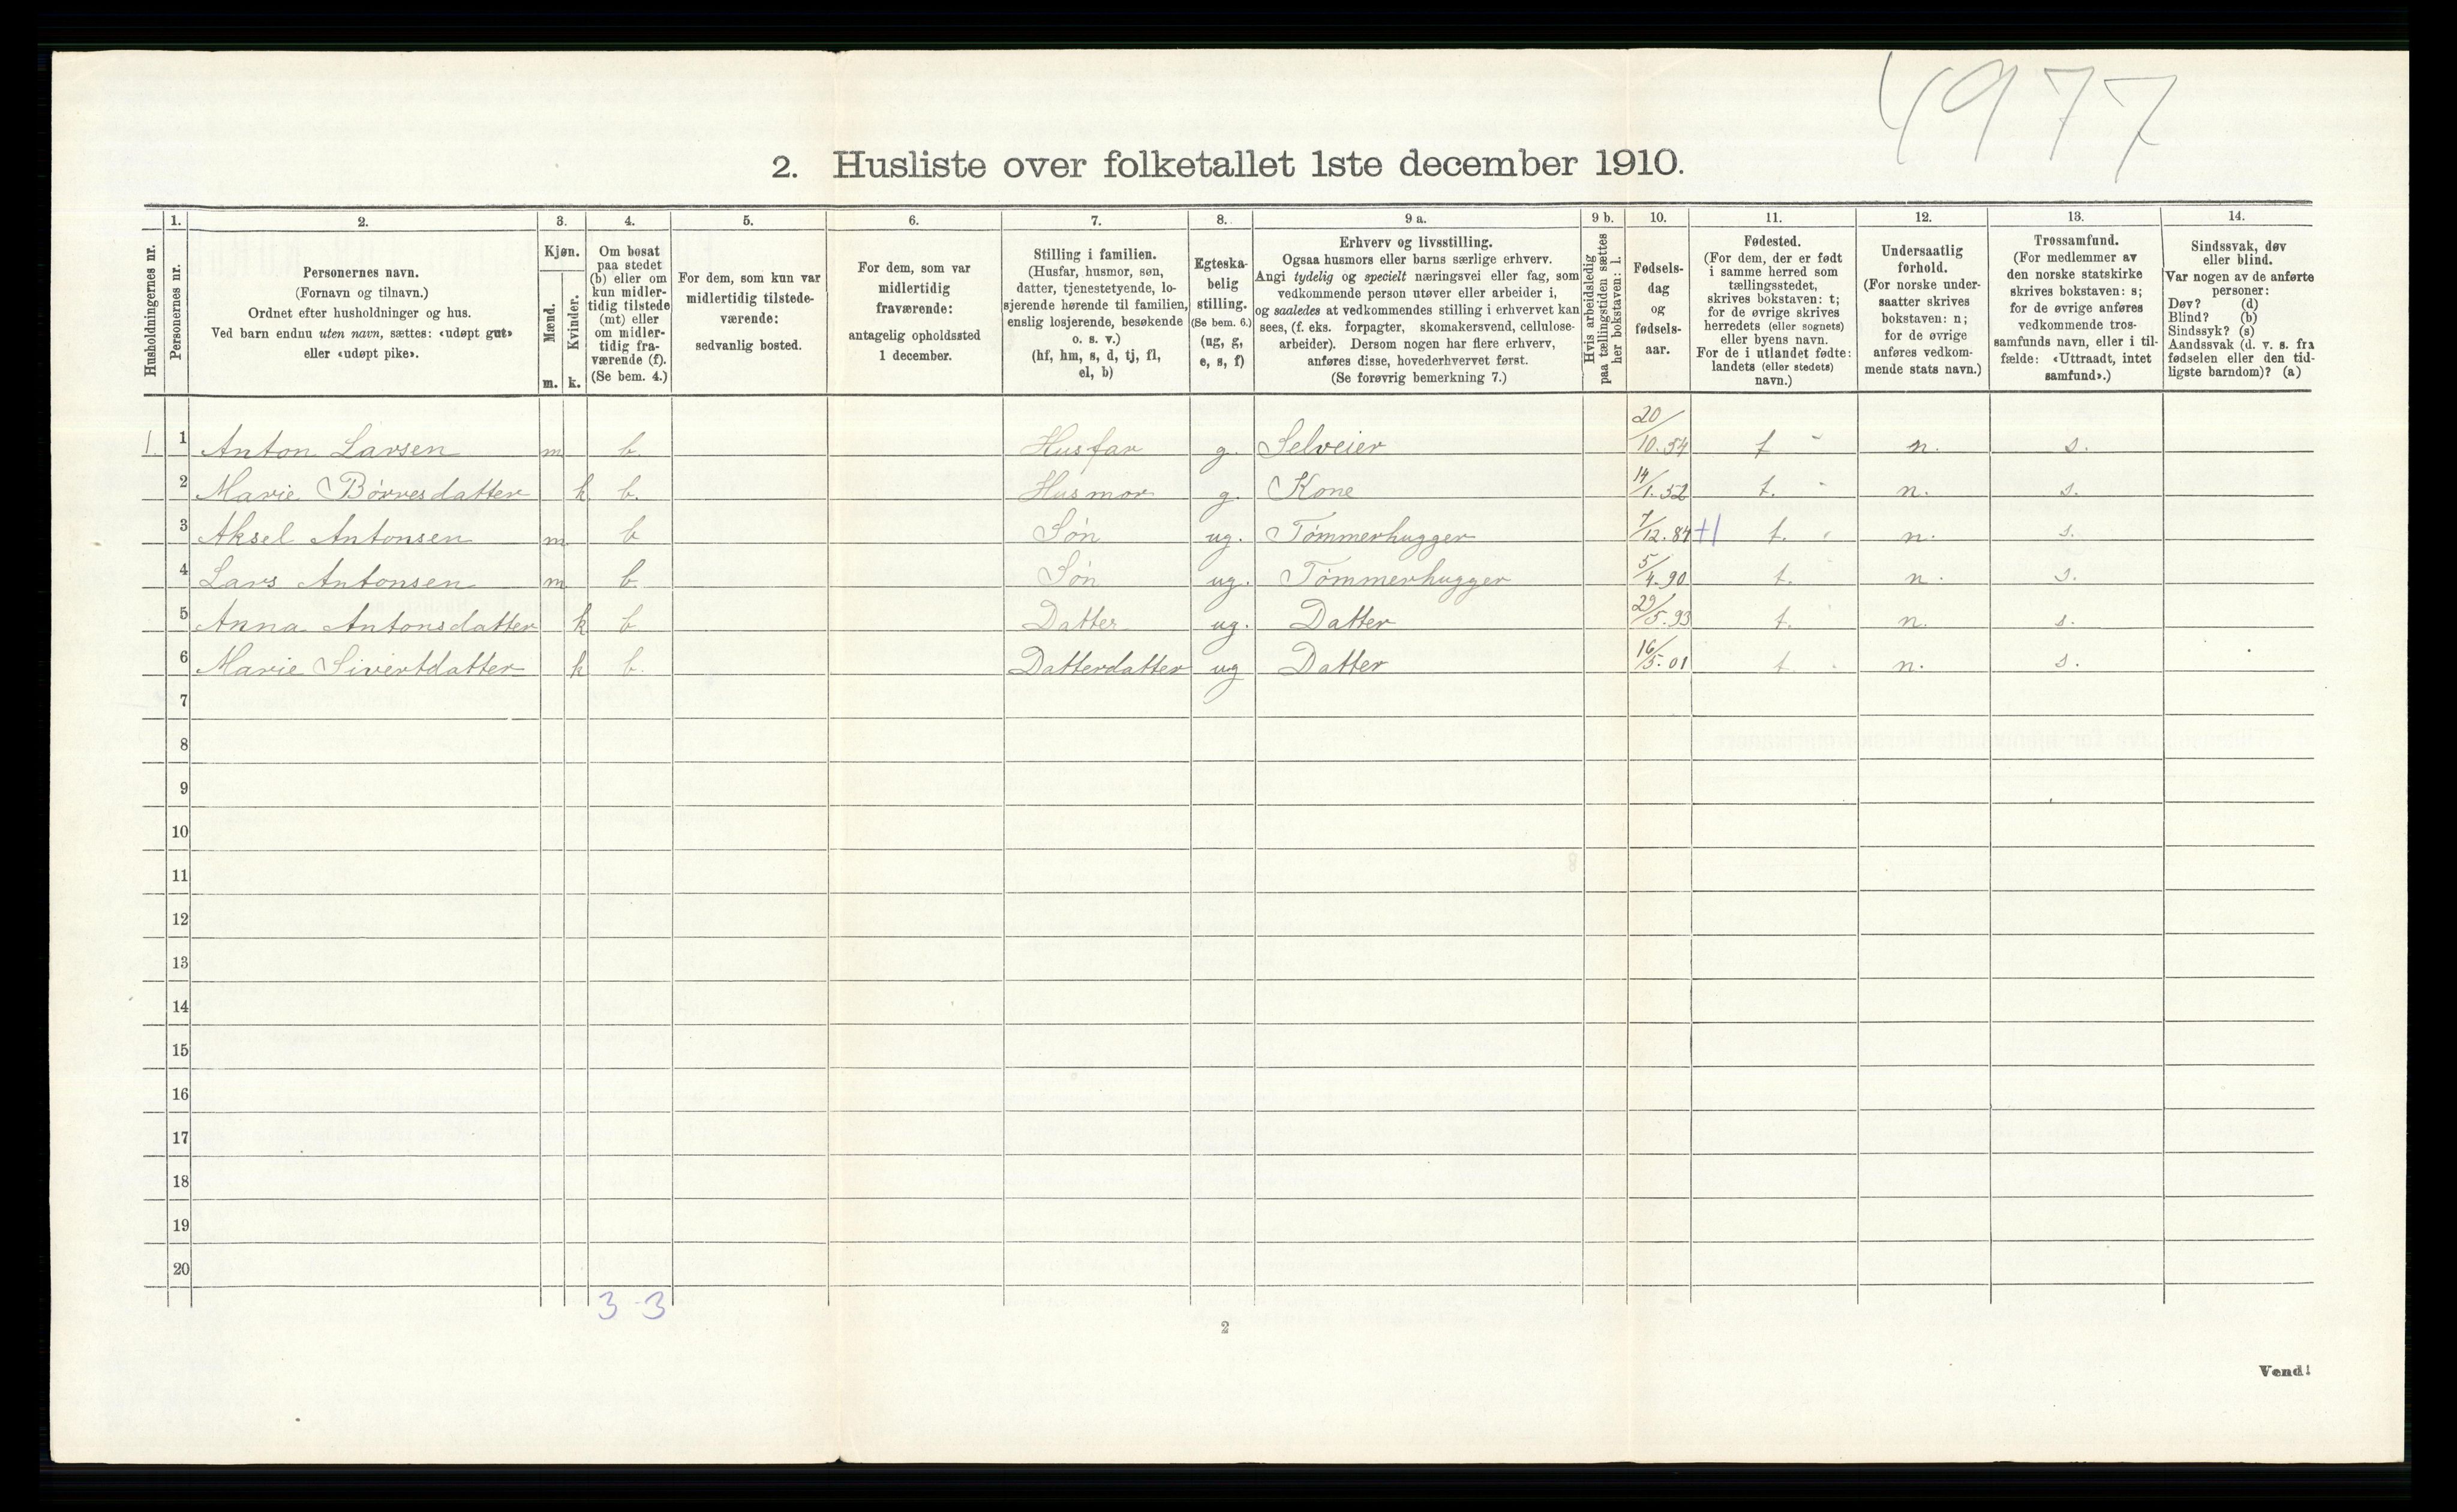 4977
2. Husliste over folketallet 1ste december 1910.
Husholdningernes nr.
1.
Personernes nr.
2.
Personernes navn.
(Fornavn og tilnavn.)
Ordnet efter husholdninger og hus.
Ved barn endnu uten navn, sættes: «udøpt gut»
eller «udøpt pike».
3.
Kjøn.
Mænd.
Kvinder.
m. k.
4.
Om bosat
paa stedet
(b) eller om
kun midler-
tidig tilstede
(mt) eller
om midler-
tidig fra-
værende (f).
(Se bem. 4.)
5.
For dem, som kun var
midlertidig tilstede-
værende:
sedvanlig bosted.
6.
For dem, som var
midlertidig
fraværende:
antagelig opholdssted
1 december.
7.
Stilling i familien.
(Husfar, husmor, søn,
datter, tjenestetyende, lo-
sjerende hørende til familien,
enslig losjerende, besøkende
o. s. v.)
(hf, hm, s, d, tj, fl,
el, b)
8.
Egteska-
belig
stilling.
(Se bem. 6.)
(ug, g,
e, s, f)
9 a.
Erhverv og livsstilling.
Ogsaa husmors eller barns særlige erhverv.
Angi tydelig og specielt næringsvei eller fag, som
vedkommende person utøver eller arbeider i,
og saaledes at vedkommendes stilling i erhvervet kan
sees, (f. eks. forpagter, skomakersvend, cellulose-
arbeider). Dersom nogen har flere erhverv,
anføres disse, hovederhvervet først.
(Se forøvrig bemerkning 7.)
9 b.
Hvis arbeidsledig
paa tællingstiden sættes
her bokstaven: l.
10.
Fødsels-
dag
og
fødsels-
aar.
11.
Fødested.
(For dem, der er født
i samme herred som
tællingsstedet,
skrives bokstaven: t;
for de øvrige skrives
herredets (eller sognets)
eller byens navn.
For de i utlandet fødte:
landets (eller stedets)
navn.)
12.
Undersaatlig
forhold.
(For norske under-
saatter skrives
bokstaven: n;
for de øvrige
anføres vedkom-
mende stats navn.)
13.
Trossamfund.
(For medlemmer av
den norske statskirke
skrives bokstaven: s;
for de øvrige anføres
vedkommende tros-
samfunds navn, eller i til-
fælde: «Uttraadt, intet
samfund».)
14.
Sindssvak, døv
eller blind.
Var nogen av de anførte
personer:
Døv? (d)
Blind? (b)
Sindssyk? (s)
Aandssvak (d. v. s. fra
fødselen eller den tid-
ligste barndom)? (a)
1. 1 Anton Larsen m b. Husfar g. Selveier 20/10.54 t n. s.
2 Marie Børresdatter k b. Husmor g. Kone 14/1.52 t. n. s.
3 Aksel Antonsen m b Søn ug. Tømmerhugger 7/12.84 t. n. s.
4 Lars Antonsen m b Søn ug. Tømmerhugger 5/4.90 t. n. s.
5 Anna Antonsdatter k b Datter ug. Datter 29/5.93 t. n. s.
6 Marie Sivertdatter k b. Datterdatter ug Datter 16/5.01 t. n. s.
7
8
9
10
11
12
13
14
15
16
17
18
19
20
3-3
2
Vend!